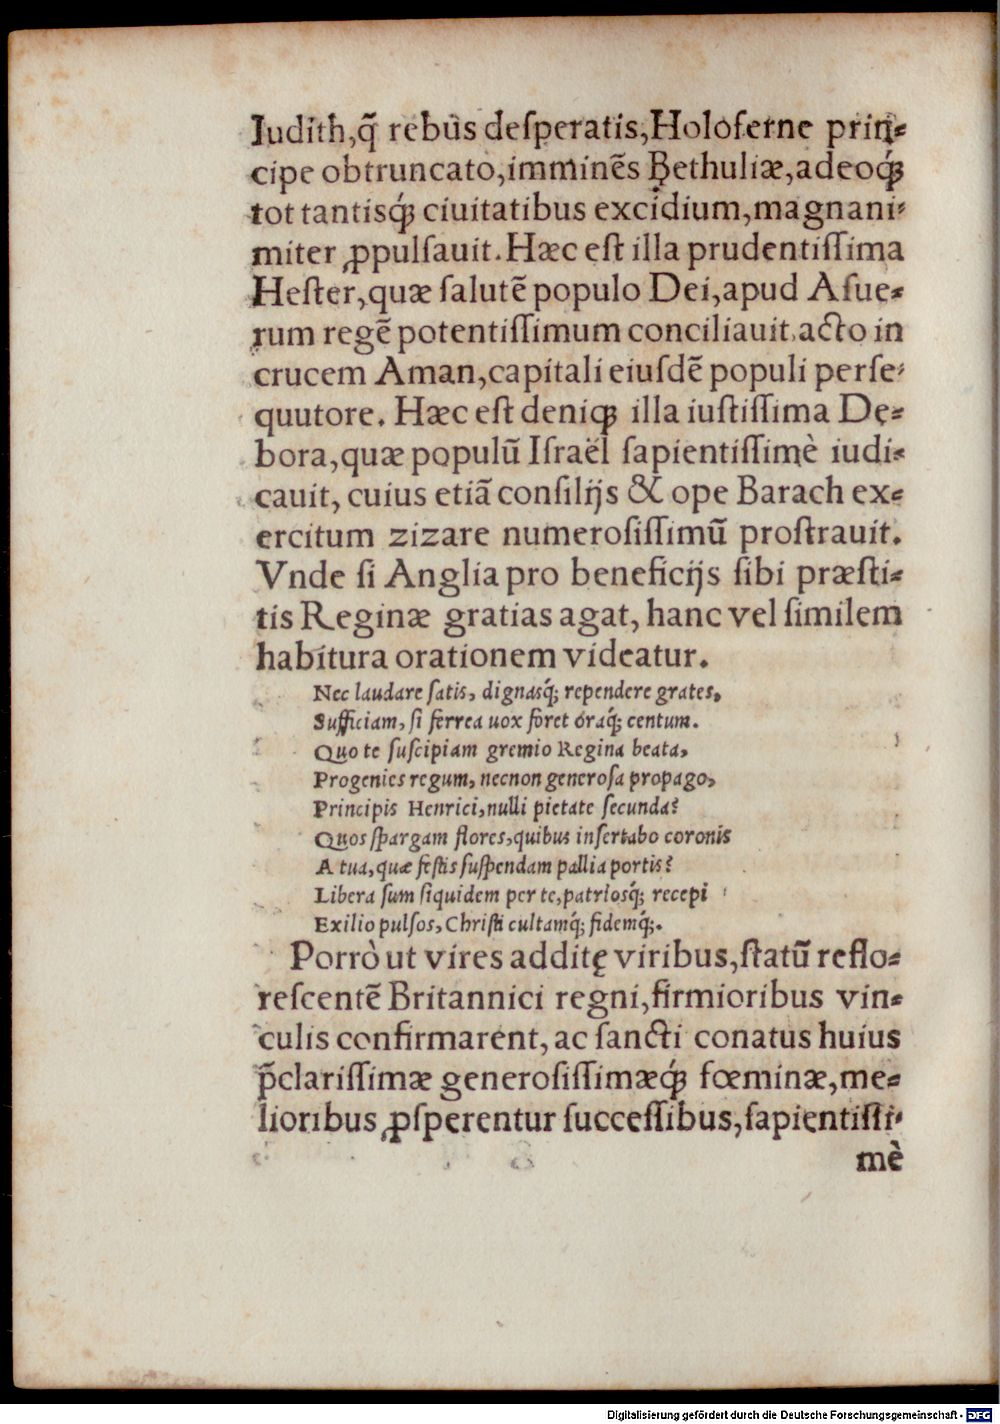 Iudith,q̃ rebus deſperatis,Holoferne prin⸗
cipe obtruncato,imminẽs Bethuliæ,adeoq́ꝫ
tot tantisq́ꝫ ciuitatibus excidium,magnani⸗
miter ꝓpulſauit. Hæc eſt illa prudentiſſima
Heſter,quæ ſalutẽ populo Dei,apud Aſue⸗
rum regẽ potentiſſimum conciliauit,acto in
crucem Aman,capitali eiuſdẽ populi perſe⸗
quutore. Hæc eſt deniqꝫ illa iuſtiſſima De⸗
bora,quæ populũ Iſraël ſapientiſſimè iudi⸗
cauit, cuius etiã conſilijs & ope Barach ex⸗
ercitum zizare numeroſiſſimũ proſtrauit.
Vnde ſi Anglia pro beneficijs ſibi præſti⸗
tis Reginæ gratias agat, hanc vel ſimilem
habitura orationem videatur.
Nec laudare ſatis, dignasq́; rependere grates,
Sufficiam, ſi ferrea uox foret oraq́; centum.
Quo te ſuſcipiam gremio Regina beata,
Progenies regum, necnon generoſa propago,
Principis Henrici,nulli pietate ſecunda?
Quos ſpargam flores,quibus inſertabo coronis
Atua,quæ feſtis ſuſpendam pallia portis?
Libera ſum ſiquidem per te,patriosq́; recepi
Exilio pulſos, Chriſti cultamq́; fidemq́;.
Porrò ut vires additę viribus,ſtatũ reflo⸗
reſcentẽ Britannici regni,firmioribus vin⸗
culis confirmarent, ac ſancti conatus huius
p̃clariſſimæ generoſiſſimæq́ꝫ fœminæ,me⸗
lioribus ꝓſperentur ſucceſſibus,ſapientiſſi⸗
mè
Digitalisierung gefördert durch die Deutsche Forschungsgemeinschaft - DFG